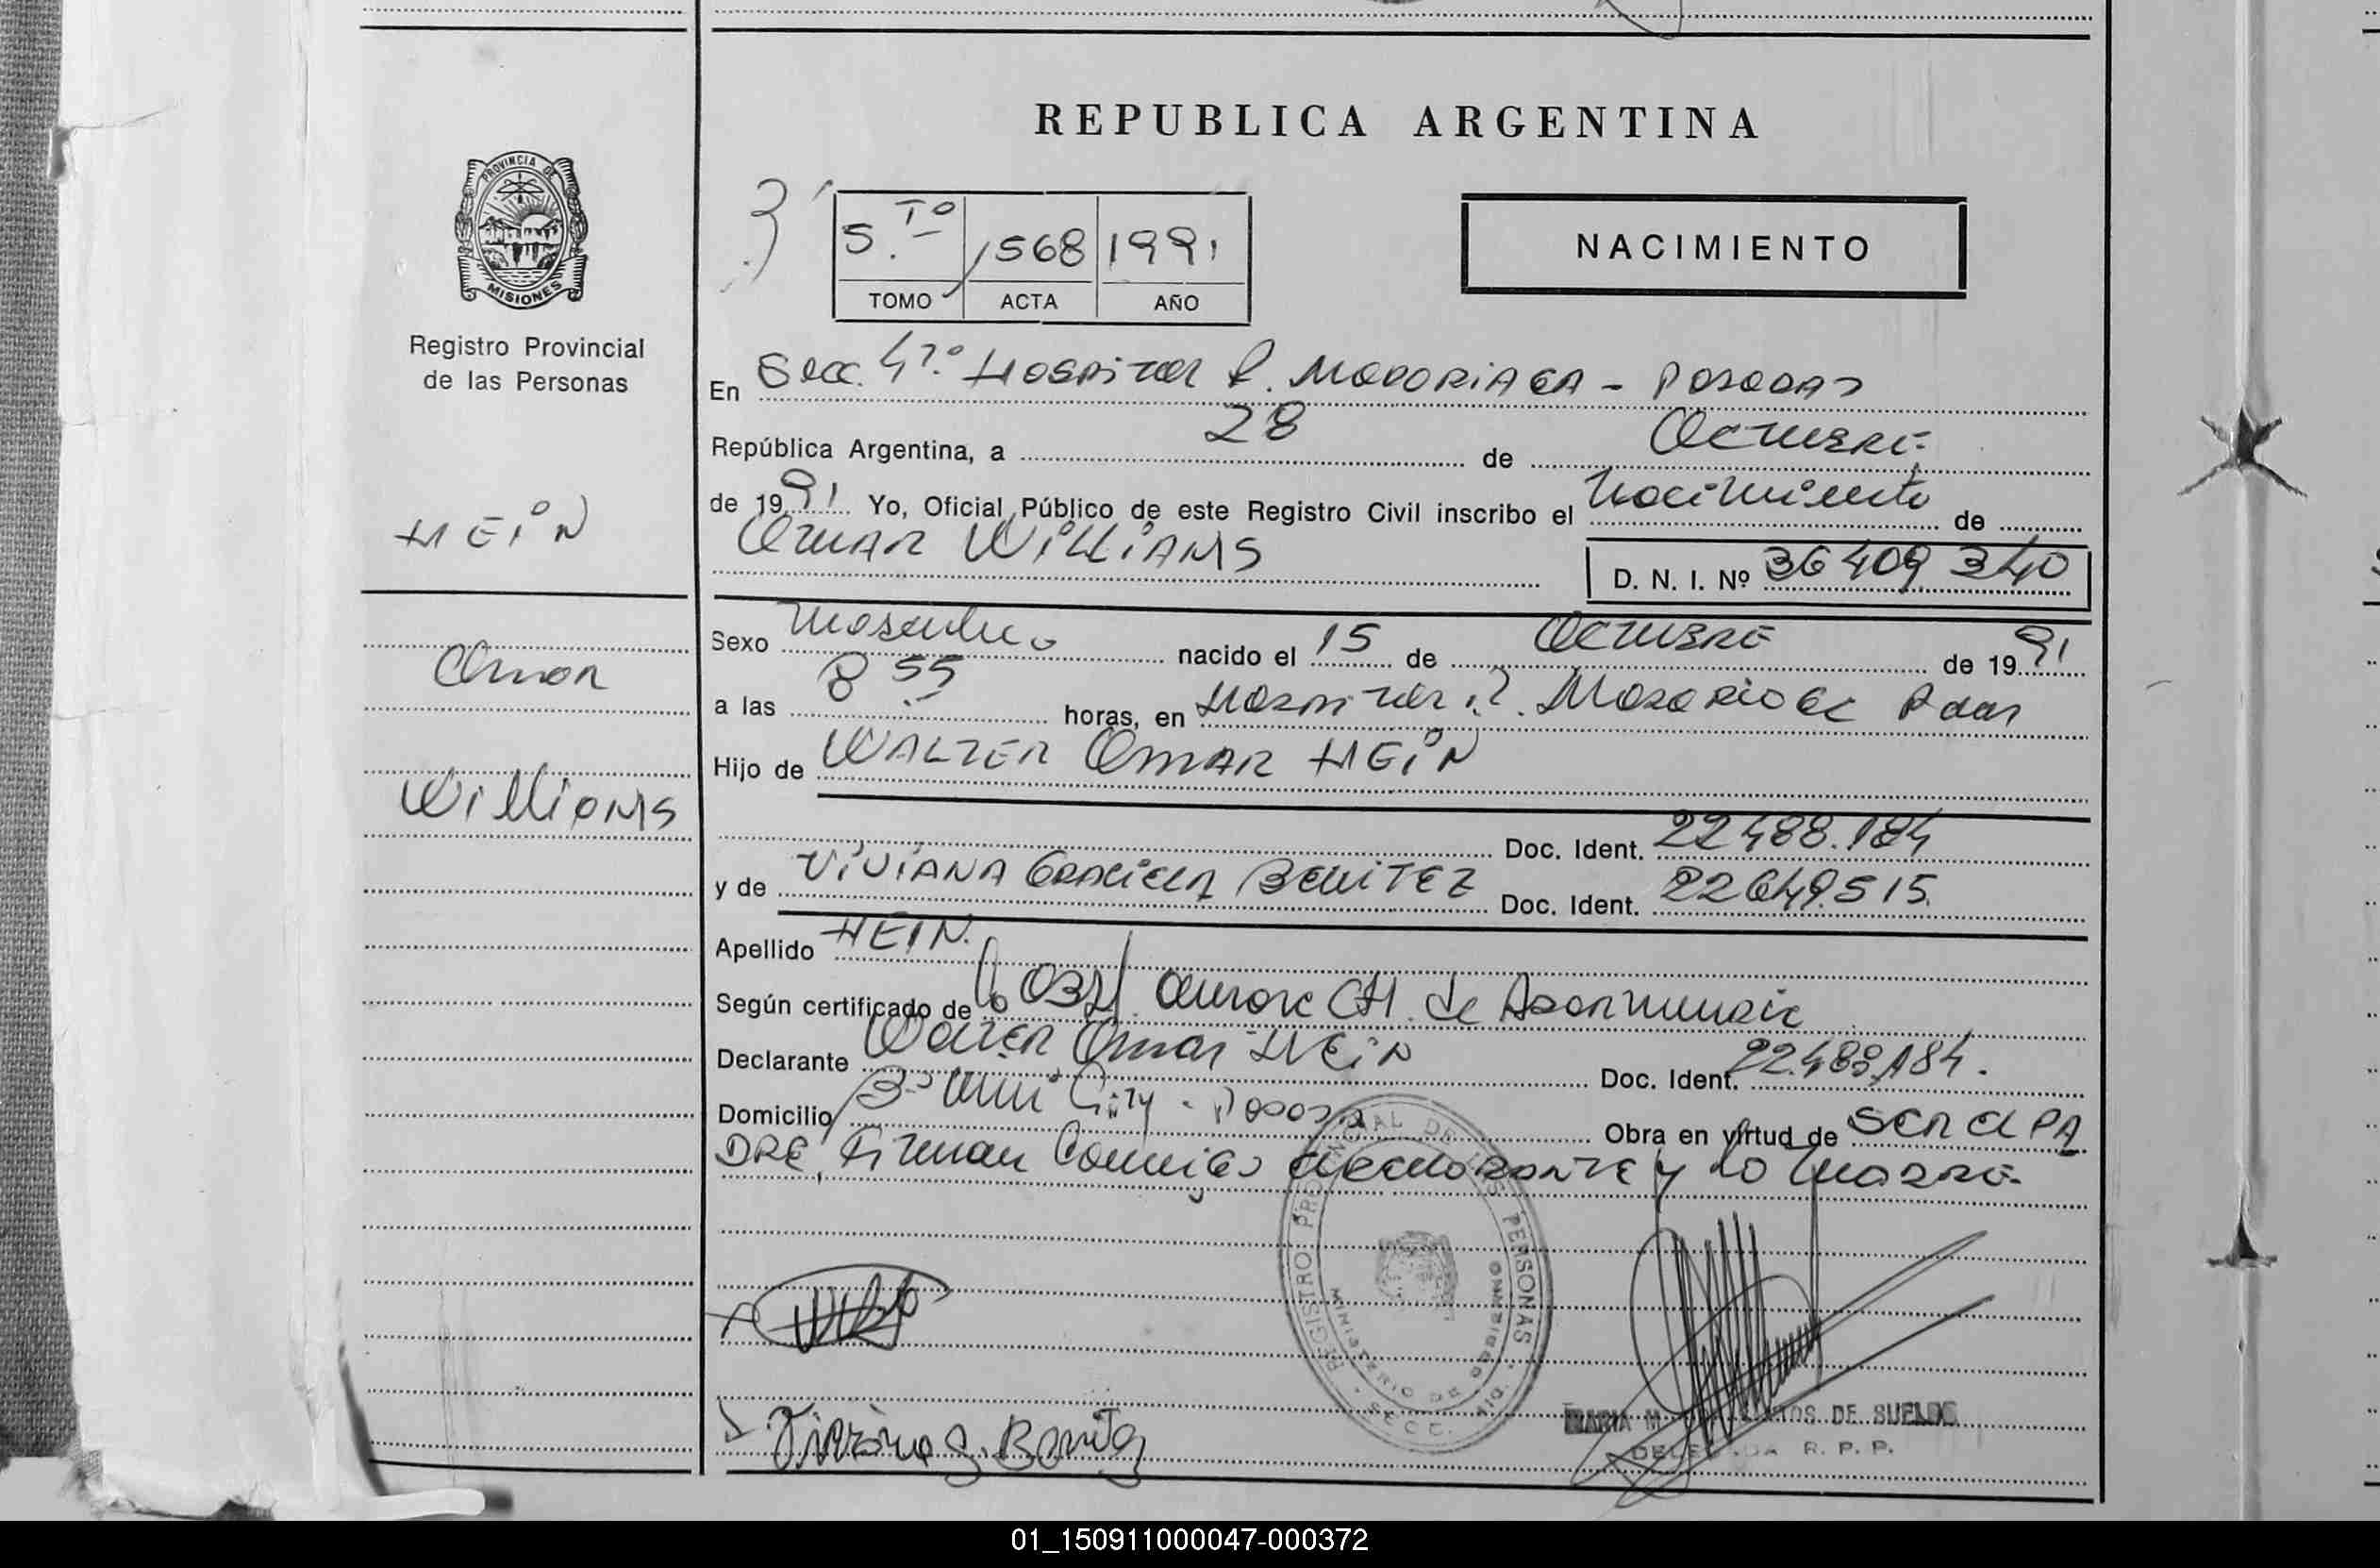 REPUBLICA ARGENTINA
PROVINCIA DE
MISIONES
Registro Provincial
de las Personas
5.TO 1568 1991
TOMO ACTA AÑO
NACIMIENTO
En Secc. 4ta. Hospital R. MADARIAGA - POSADAS
República Argentina, a 28 de OCTUBRE
de 1991 Yo, Oficial Público de este Registro Civil inscribo el Nacimiento de
HEIN
OMAR WILLIAMS
D. N. I. Nº 36409340
Omar
Williams
Sexo Masculino nacido el 15 de OCTUBRE de 1991
a las 8 55 horas, en Hospital R. Madariaga Pdas
Hijo de WALTER OMAR HEIN
Doc. Ident. 22488.184
y de VIVIANA GRACIELA BENITEZ Doc. Ident. 22649515
Apellido HEIN.
Según certificado de la Obst. de
Declarante Walter Omar HEIN Doc. Ident. 22.488.184.
Domicilio Bº Posadas Obra en virtud de SER el PA
DRE, Firman Conmigo declarante y la madre.
REGISTRO PROVINCIAL DE LAS PERSONAS
MINISTERIO DE GOBIERNO
SECC.
Viviana G. Benitez
MARIA M. DE SUELDO
DELEGADA R. P. P.
01_150911000047-000372